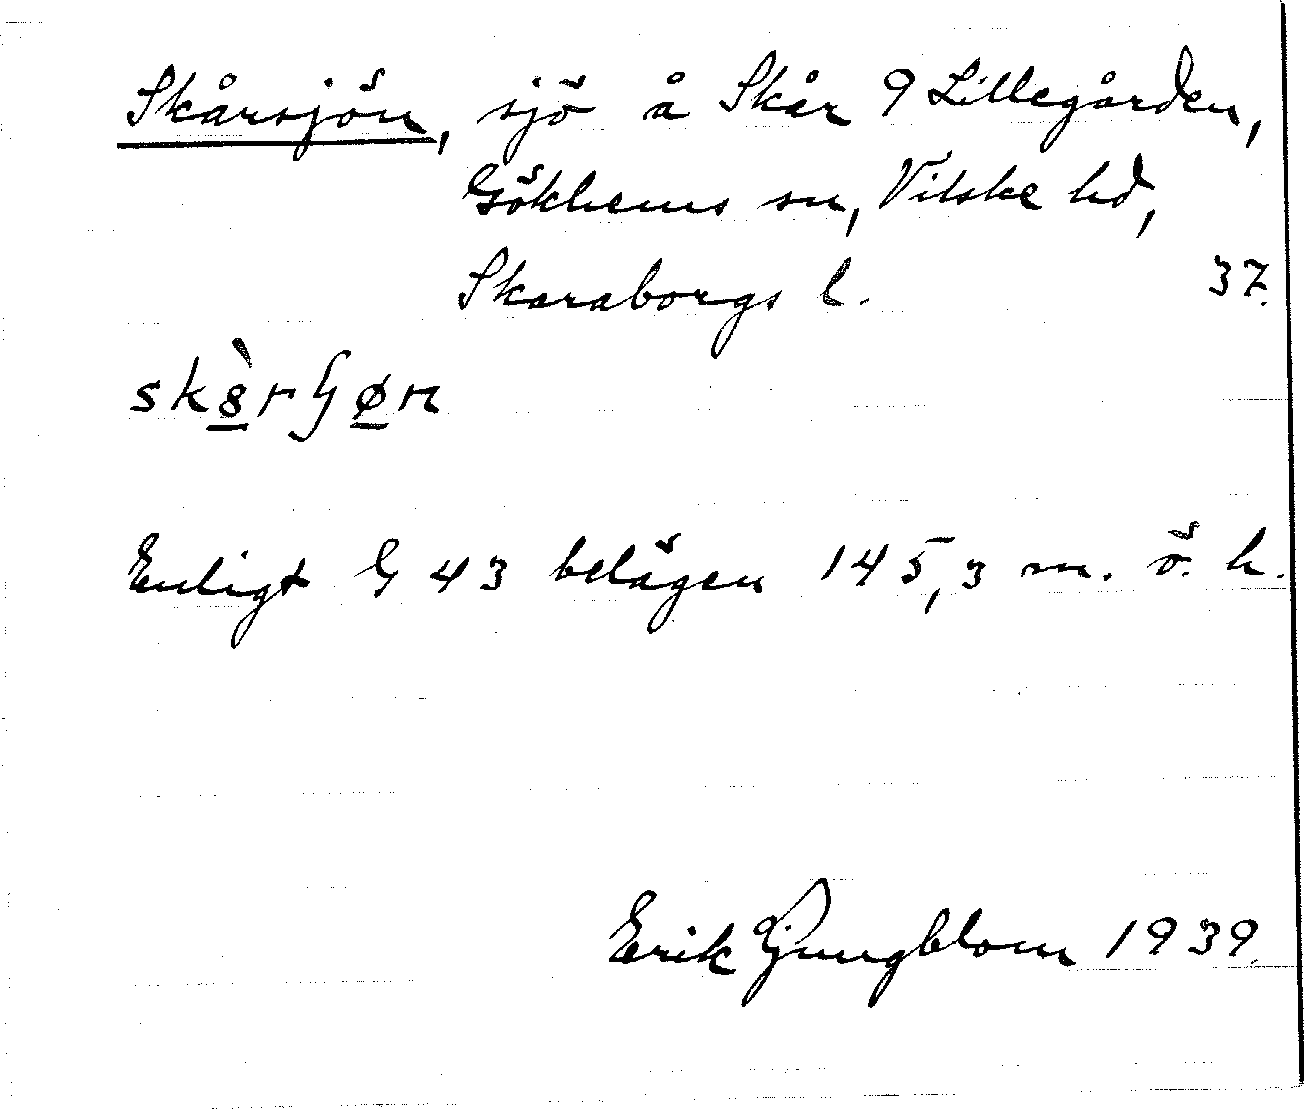 Skårsjön, sjö å Skår 9 Lillegården,
Gökhems sn, Vilske hd,
Skaraborgs l. 37.
Enligt G 43 belägen 145,3 m. ö. h.
Erik Ljungblom 1939.